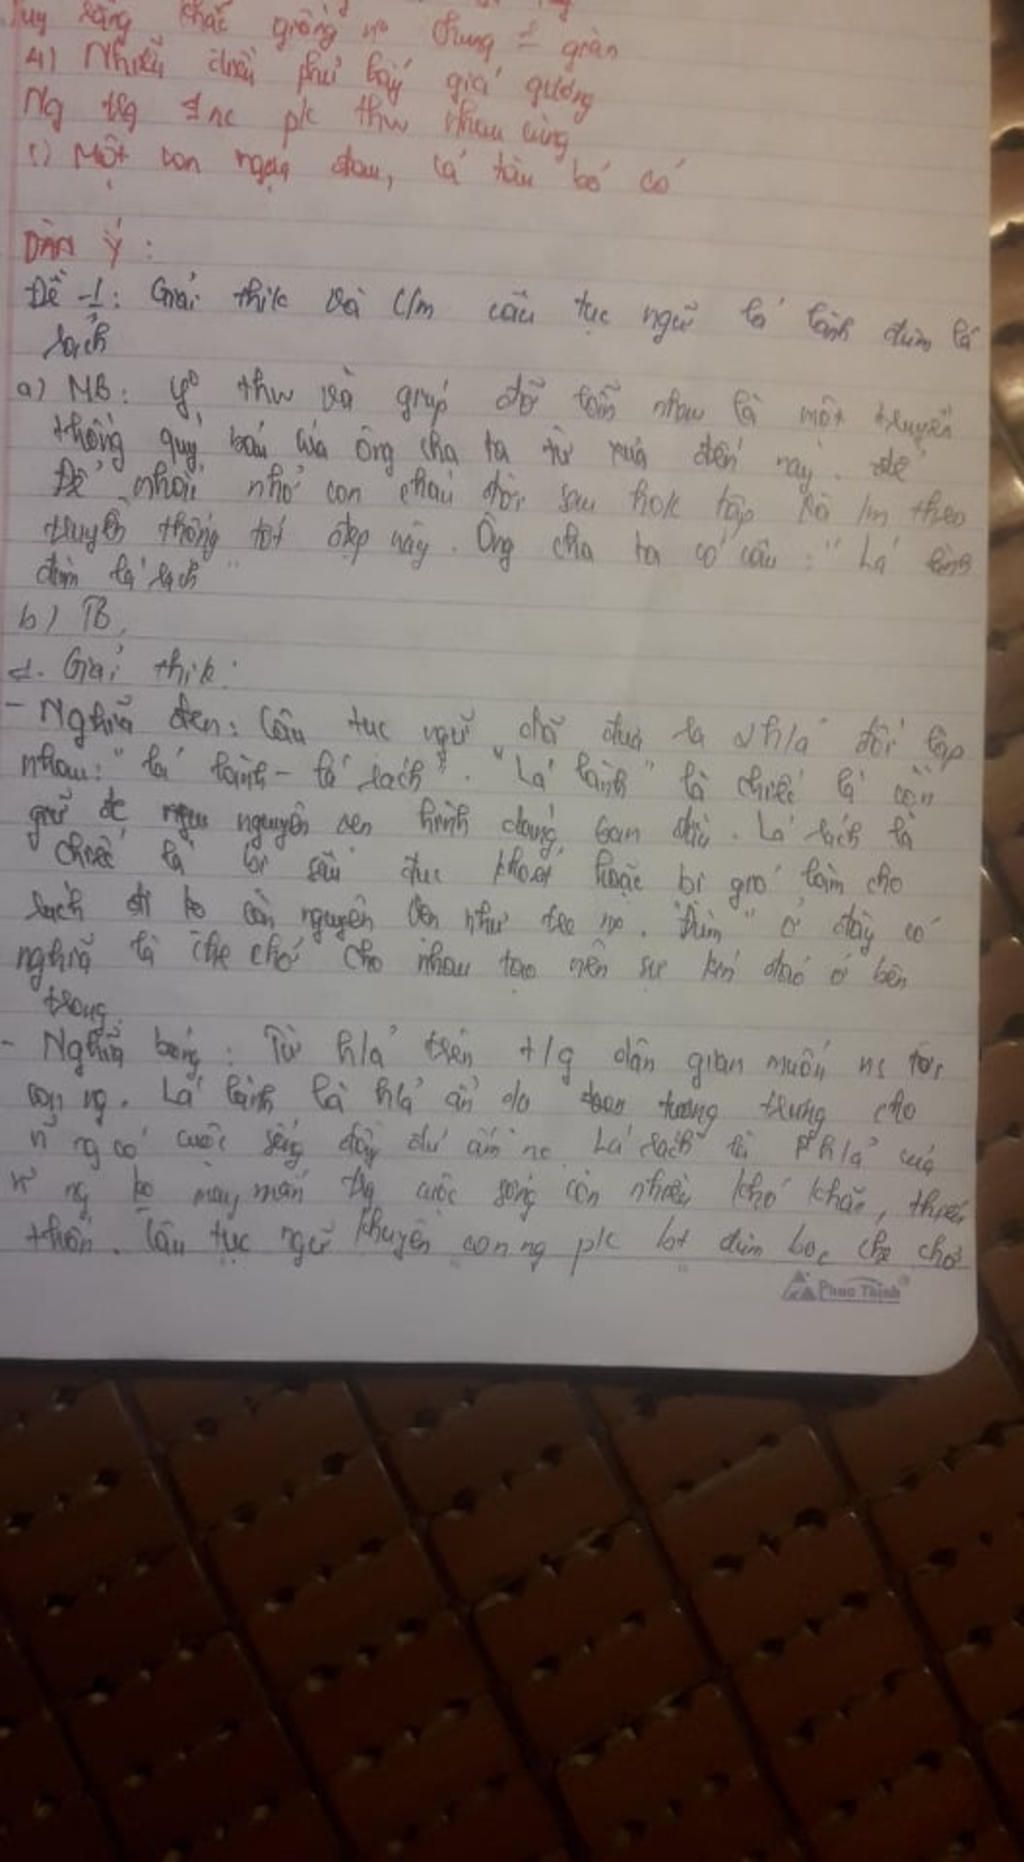 Tuy rằng khác giống nº chung 1 giàn
4) Nhiễu điều phủ lấy giá gương
Ng trg 1 nc pk thw nhau cùng
5) Một con ngựa đau, cả tàu bỏ cỏ
DÀN Ý :
Đề 1 : Giải thik và c/m câu tục ngữ lá lành đùm lá
rách
a) MB : yº thw và giúp đỡ lẫn nhau là một truyền
thống quý báu của ông cha ta từ xưa đến nay. để
Để nhắc nhở con cháu đời sau hok tập và lm theo
truyền thống tốt đẹp này. Ông cha ta có câu : " Lá lành
đùm lá rách "
b) TB,
Giải thik :
- Nghĩa đen : Câu tục ngữ đã đưa ra 2 h/ả đối lập
nhau : " lá lành - lá rách ". " Lá lành " là chiếc lá còn
giữ đc nguyên vẹn hình dáng ban đầu. Lá rách là
chiếc lá bị sâu đục khoét hoặc bị gió làm cho
rách đi ko còn nguyên vẹn như trc nó. " Đùm " ở đây có
nghĩa là che chở cho nhau tạo nên sự kín đáo ở bên
trong.
- Nghĩa bóng : Từ h/ả trên t/g dân gian muốn ns tới
con ng. Lá lành là h/ả ẩn dụ tượng trưng cho
n~ ng có cuộc sống đầy đủ ấm no. Lá rách là h/ả của
n~ ng ko may mắn trg cuộc sống còn nhiều khó khăn, thiếu
thốn. Câu tục ngữ khuyên con ng pk bt đùm bọc che chở
Phuc Thinh